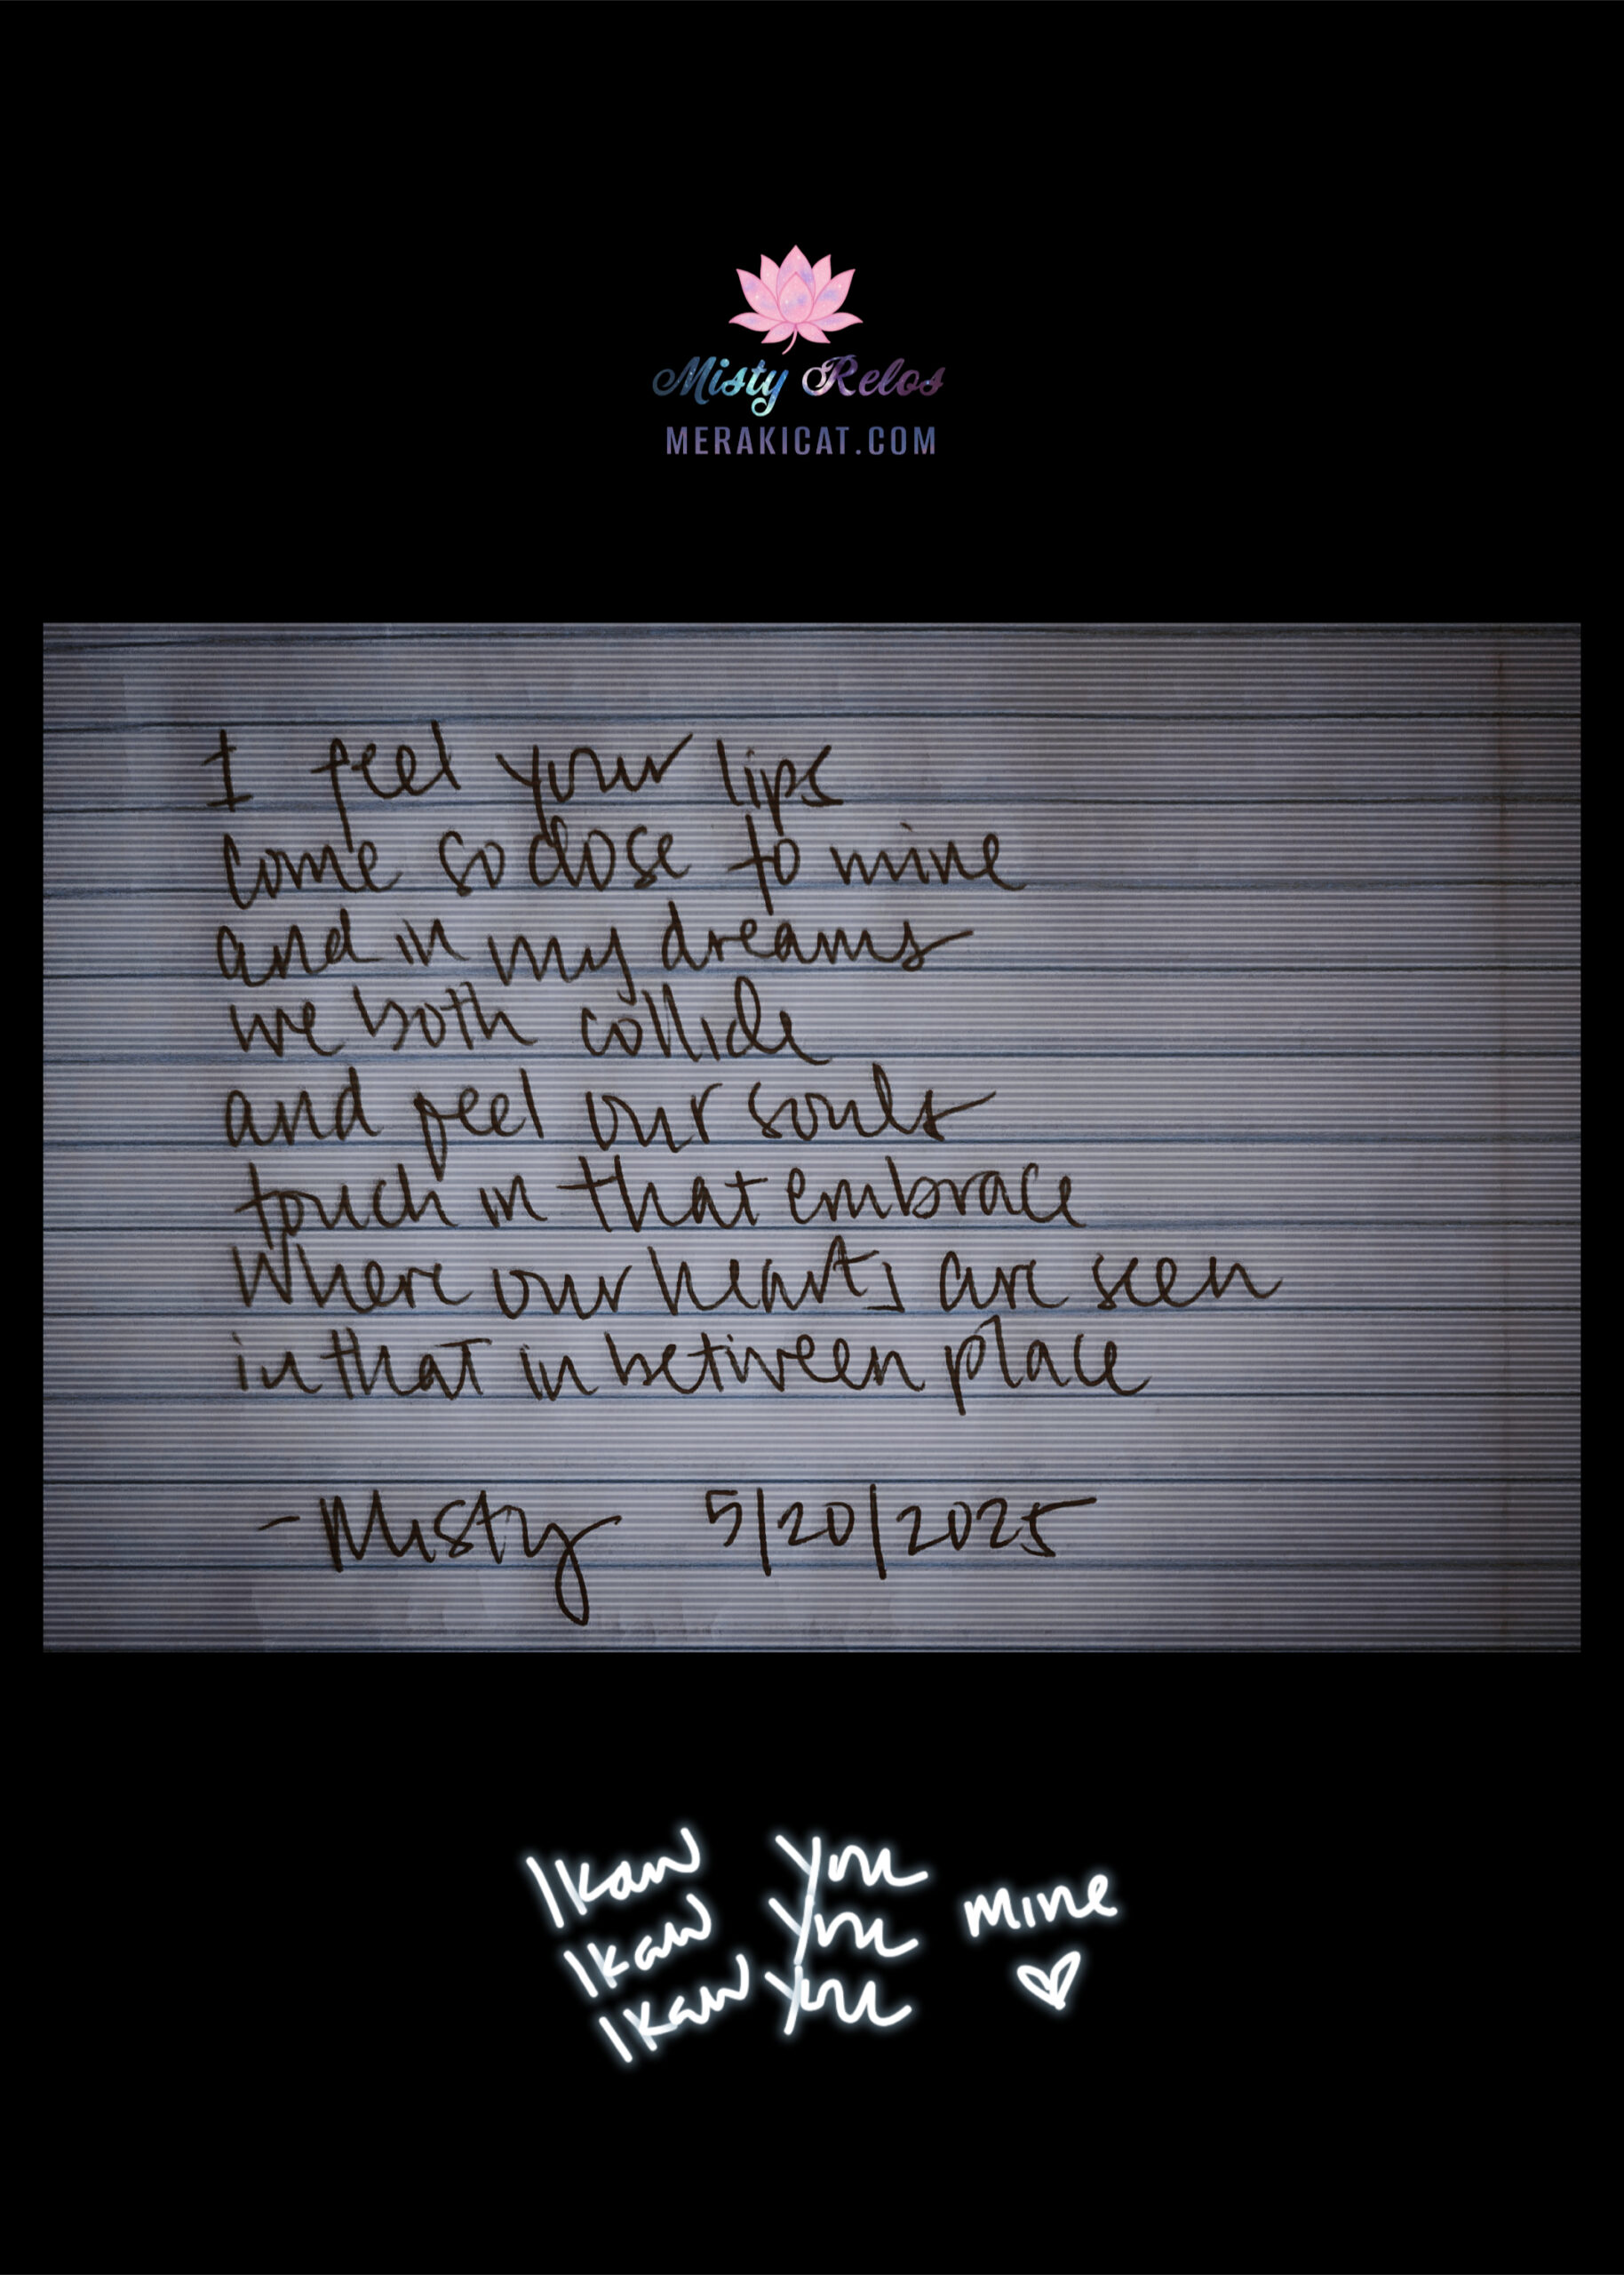 Misty Relos
MERAKICAT.COM
I feel your lips
come so close to mine
and in my dreams
we both collide
and feel our souls
touch in that embrace
Where our hearts are seen
in that in between place
- Misty 5/20/2025
Ikaw You
Ikaw You mine
Ikaw You